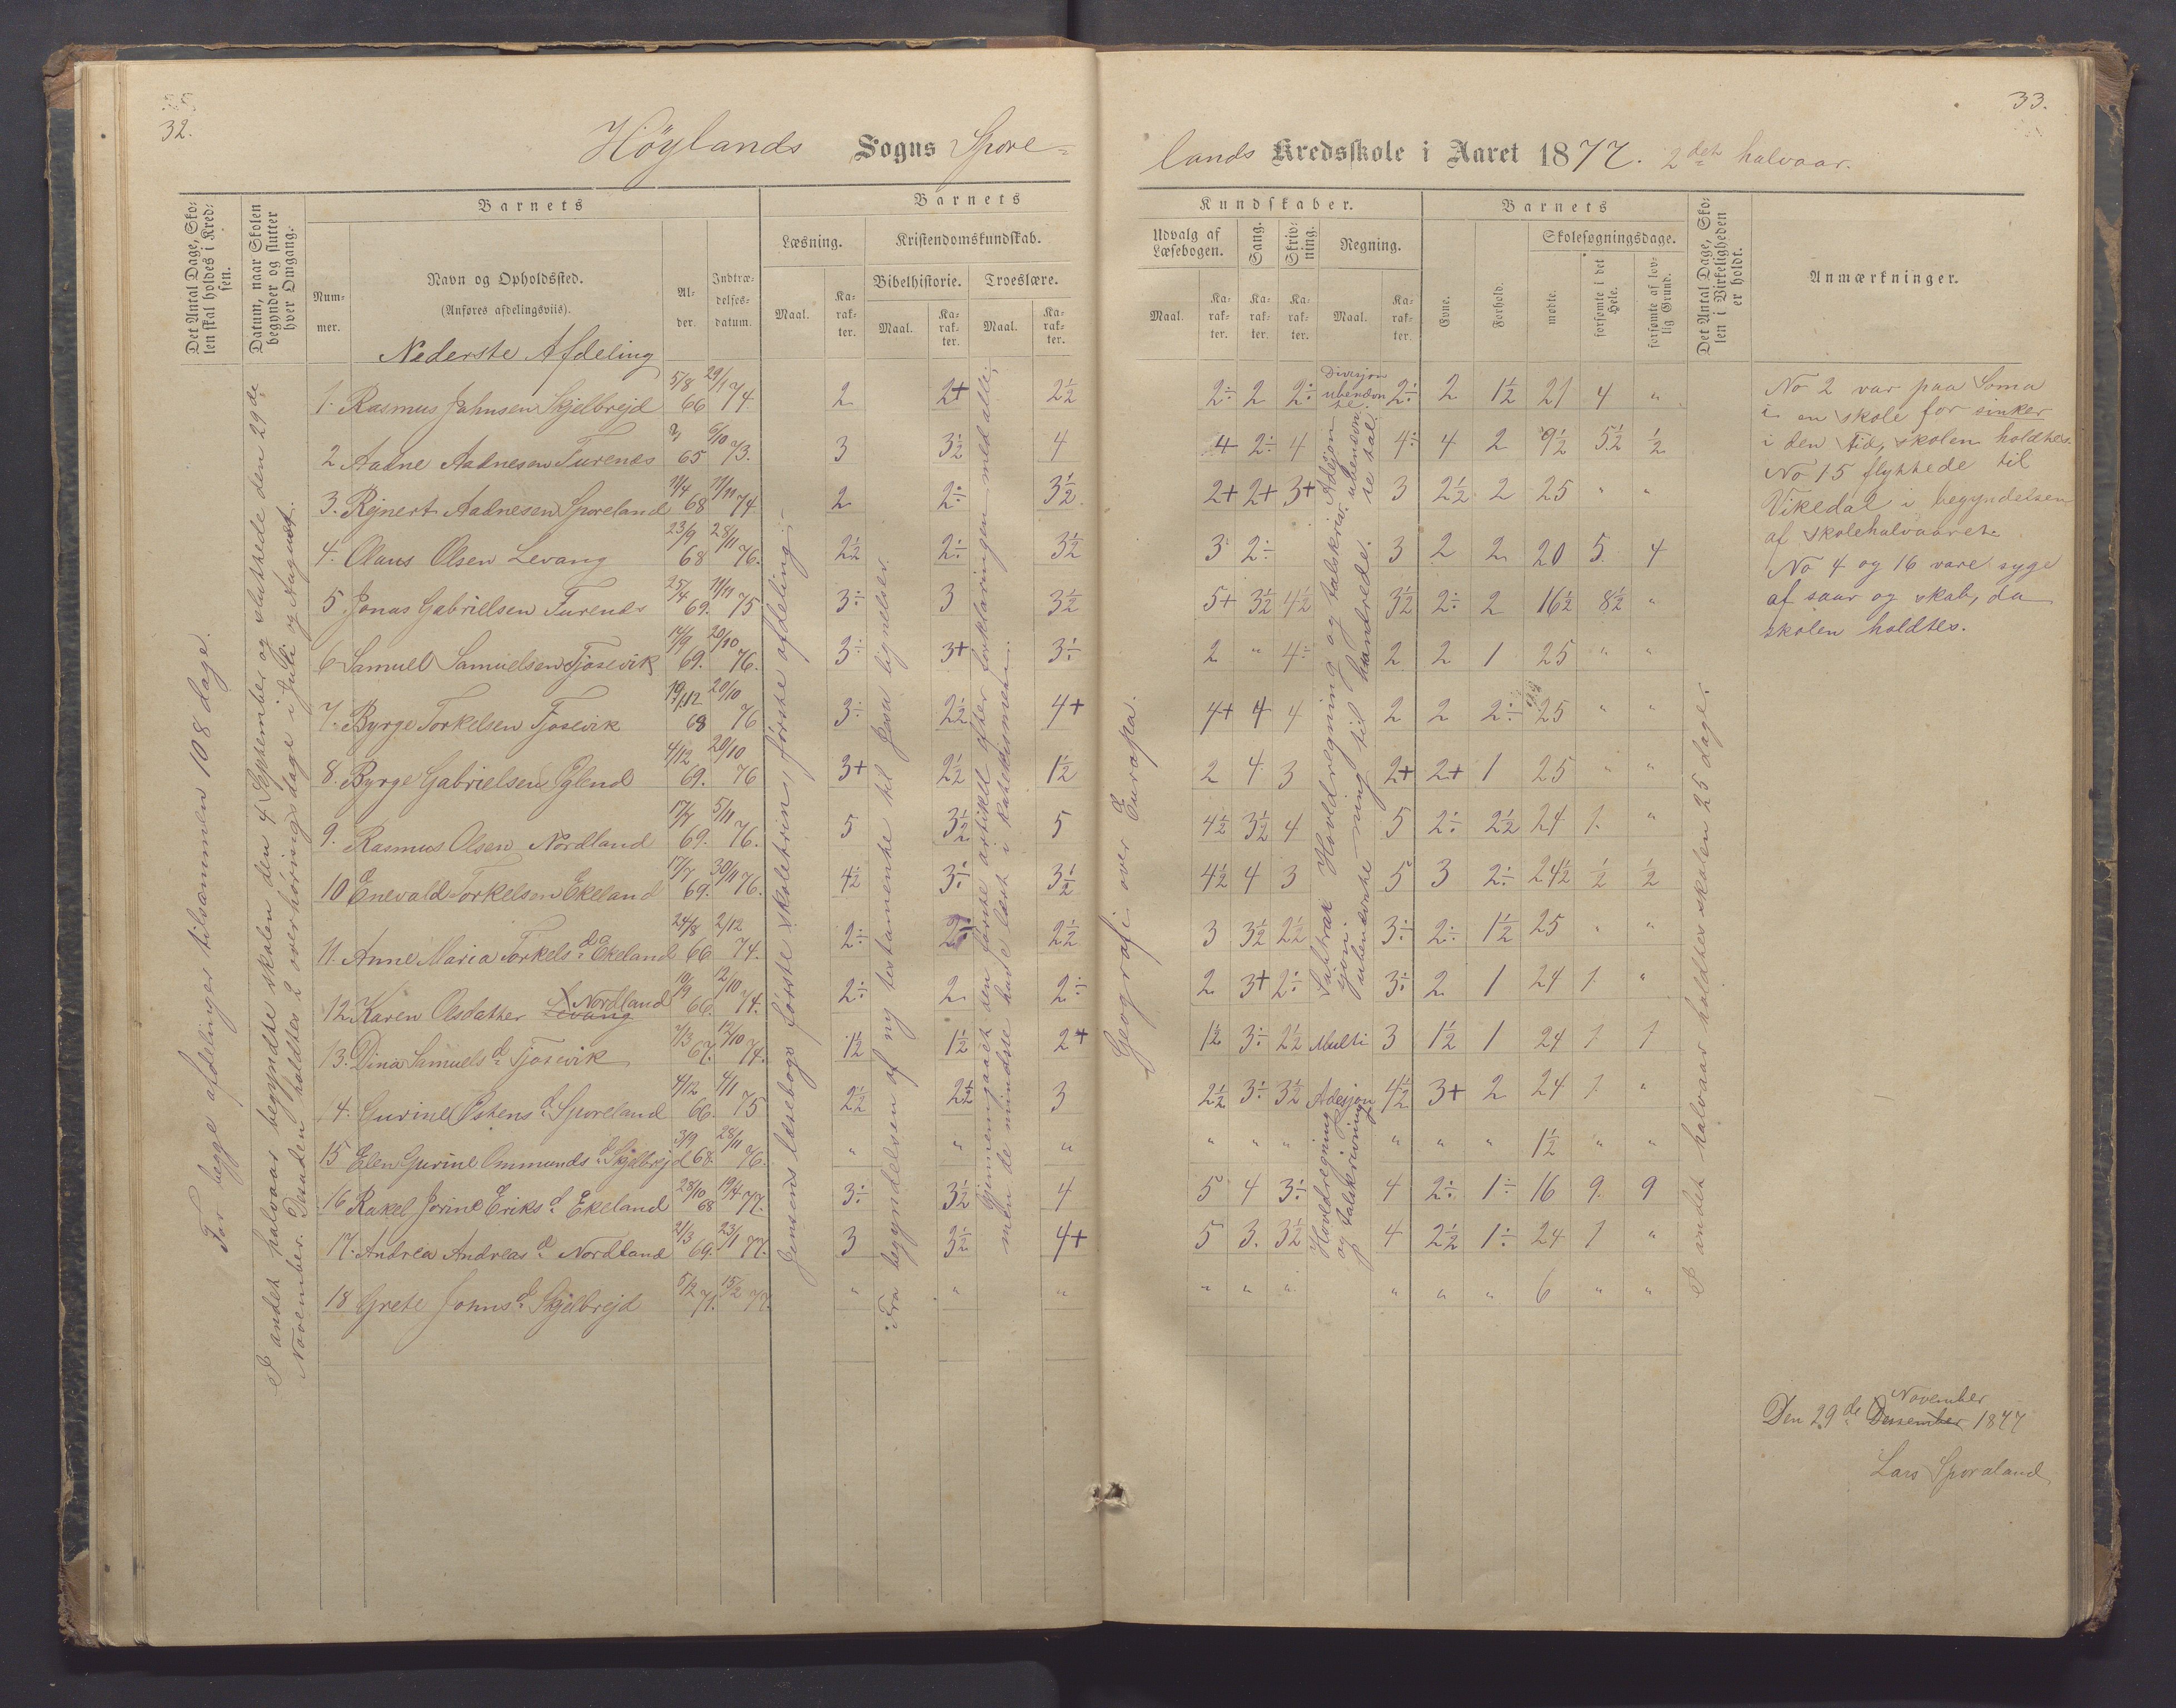 32.
Höylands Sogns Spore-
Det Antal Dage, Skolen skal holdes i Kredsen.
Datum, naar Skolen begynder og slutter hver Omgang.
Barnets
Barnets
Nummer.
Navn og Opholdssted.
(Anføres afdelingsviis).
Alder.
Indtrædelsesdatum.
Læsning.
Kristendomskundskab.
Bibelhistorie.
Troeslære.
Maal.
Karakter.
Maal.
Karakter.
Maal.
Karakter.
Nederste Afdeling
1. Rasmus Johnsen Skjelbrejd 5/8 66 29/1 74. 2 2+ 2½
2 Aadne Aadnesen Furenes 65 6/10 73. 3 3½ 4
3. Rejnert Aadnesen Sporeland 11/4 68 11/11 74 2 2÷ 3½
4. Olaus Olsen Levang 23/9 68 28/11 76. 2½ 2÷ 3½
5 Jonas Gabrielsen Furenes 25/4 69. 11/11 75 3÷ 3 3½
6 Samuel Samuelsen Tjosevik 14/9 69. 20/10 76. 3÷ 3+ 3÷
7. Byrge Torkelsen Tjosevik 19/12 68 20/10 76 3÷ 2½ 4+
8. Byrge Gabrielsen Eglend 4/12 69. 20/10 76 3+ 2½ 1½
9. Rasmus Olsen Nordland 17/7 69. 5/11 76. 5 3½ 5
10 Enevald Torkelsen Ekeland 17/7 69. 30/11 76. 4½ 3÷ 3½
11. Anne Maria Torkelsd. Ekeland 24/8 66 2/12 74. 2÷ 2÷ 2½
12 Karen Olsdatter Levang Nordland 10/9 66. 12/10 74. 2÷ 2 2÷
13. Dina Samuelsd. Tjosevik 7/3 67. 12/10 74. 1½ 1½ 2+
14. Gurine Østensd. Sporeland 4/12 66. 4/1 75 2½ 2½ 3
15 Elen Gurine Ommundsd. Skjelbrejd 3/9 68. 28/11 76. " " "
16 Rakel Jorine Eriksd. Ekeland 28/10 68 19/4 77. 3÷ 3½ 4
17. Andrea Andreasd. Nordland 21/3 69. 23/1 77. 3 3½ 4+
18 Grete Johnsd. Skjelbrejd 5/2 71. 15/2 77. " " "
For begge afdelinger tilsammen 108 dage.
I andet halvaar begyndte skolen den 4 September og sluttede den 29de
November. Desuden holdtes 2 overhøringsdage i Juli og August.
Jensens læsebogs første skoletrin, første afdeling.
Fra begyndelsen af ny testamente til Jesu lignelser.
Gjennemgaaet den første artikel efter forklaringen med alle,
men de mindste have læst i katekismen.
33.
lands Kredsskole i Aaret 1877. 2det halvaar.
Kundskaber.
Barnets
Udvalg af Læsebogen.
Sang.
Skrivning.
Regning.
Evne.
Forhold.
Skolesøgningsdage.
mødte.
forsømte i det Hele.
forsømte af lovlig Grund.
Det Antal Dage, Skolen i Virkeligheden er holdt.
Anmærkninger.
Maal.
Karakter.
Karakter.
Karakter.
Maal.
Karakter.
2÷ 2 2÷ Divisjon ubenævnte. 2÷ 2 1½ 21 4 "
4 2÷ 4 4÷ 4 2 9½ 5½ ½
2+ 2+ 3+ 3 2½ 2 25 " "
3 2÷ 3 2 2 20 5 4
5+ 3½ 4½ 3½ 2÷ 2 16½ 8½ "
2 " 4÷ 2 2 1 25 " "
4+ 4 4 2 2 2÷ 25 " "
2 4 3 2+ 2+ 1 25 " "
4½ 3½ 4 5 2÷ 2½ 24 1 "
4½ 4 3 5 3 2÷ 24½ ½ ½
3 3½ 2½ 3÷ 2÷ 1½ 25 " "
2 3+ 2÷ 3÷ 2 1 24 1 "
1½ 3÷ 2½ Multi 3 1½ 1 24 1 1
2½ 3÷ 3½ Adisjon 4½ 3+ 2 24 1 "
" " " " " " 1½ " "
5 4 3÷ 4 2÷ 1÷ 16 9 9
5 3. 3½ 4 2½ 1÷ 24 1 "
" " " " " " 6 " "
Geografi over Europa.
Hovedregning og talskrivning til hundrede.
Hovedregning og talskrivning
I andet halvaar holdtes skolen 25 dage.
No 2 var paa Soma
i en skole for sinker
i den tid, skolen holdtes.
No 15 flyttede til
Vikedal i begyndelsen
af skolehalvaaret.
No 4 og 16 vare syge
af saar og skab, da
skolen holdtes.
Den 29de Desember November 1877
Lars Sporaland